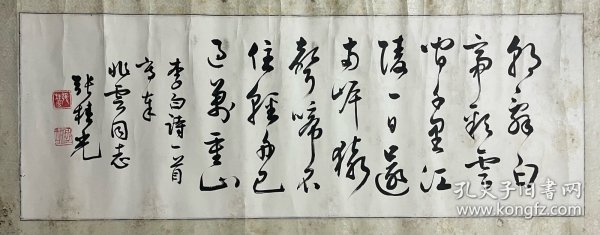 朝辞白
帝彩雲
间千里江
陵一日還
两岸猿
聲啼不
住轻舟已
过萬重山
李白诗一首
写奉
兆雲同志
张桂光
孔夫子旧書网
www.kongfz.com